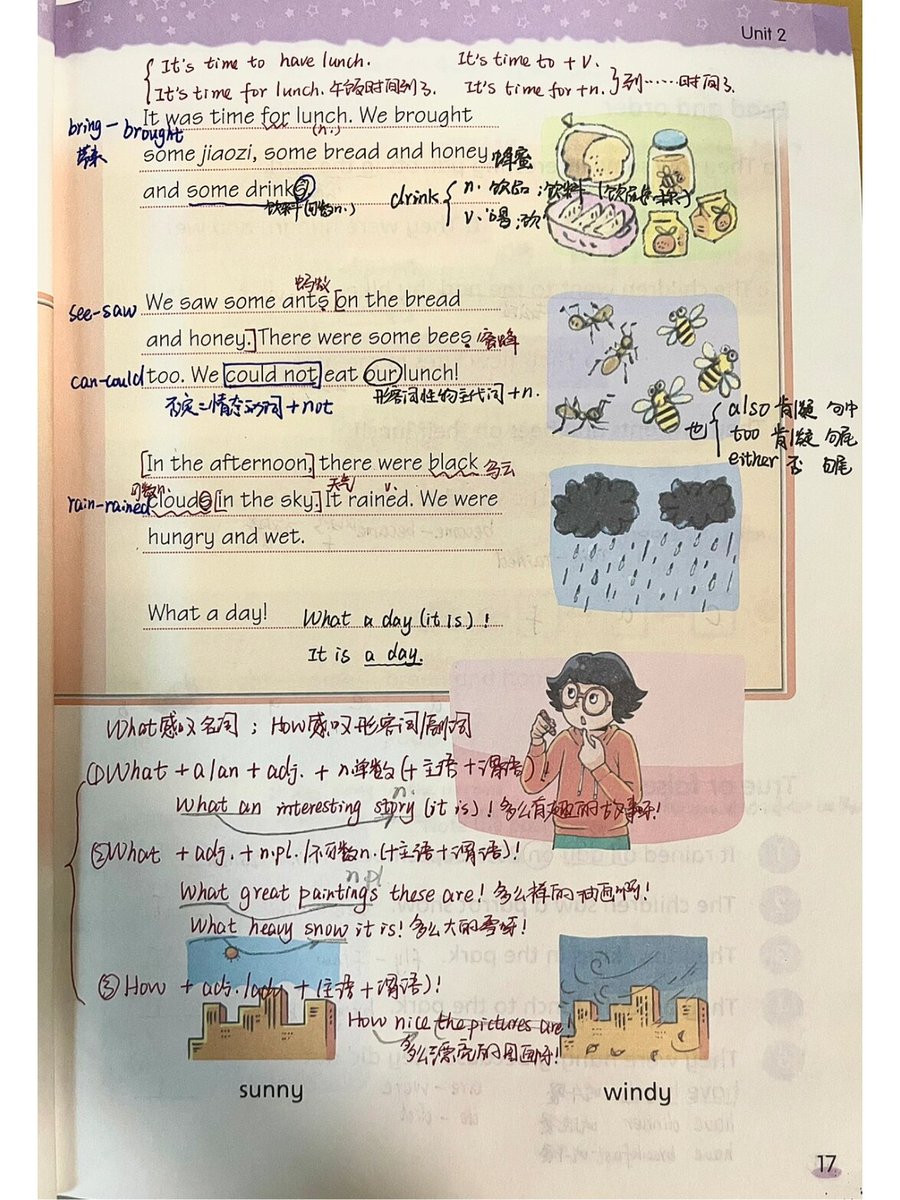 Unit 2
It's time to have lunch. It's time to + v.
It's time for lunch. 午饭时间到了. It's time for + n. 到……时间了
It was time for lunch. We brought
bring - brought (n.)
some jiaozi, some bread and honey 蜂蜜
带来
and some drinks. drink n. 饮品;饮料
饮料(可数n.) v. 喝;
蚂蚁
see-saw We saw some ants [on the bread
and honey.] There were some bees, 蜜蜂
can-could too. We could not eat our lunch!
否定=情态动词+not 形容词性物主代词+n.
也 also 肯/疑 句中
too 肯/疑 句尾
either 否 句尾
[In the afternoon,] there were black 乌云
可数n. 天气 v.
rain-rained clouds [in the sky.] It rained. We were
hungry and wet.
What a day! What a day (it is)!
It is a day.
What感叹名词;How感叹形容词/副词
①What + a/an + adj. + n.单数(+主语+谓语)!
n.
What an interesting story (it is)! 多么有趣的故事啊!
②What + adj. + n.pl./不可数n.(+主语+谓语)!
n.pl
What great paintings these are! 多么棒的油画啊!
What heavy snow it is! 多么大的雪呀!
③How + adj./adv. + (主语+谓语)!
How nice the pictures are!
多么漂亮的图画呀!
sunny windy
17